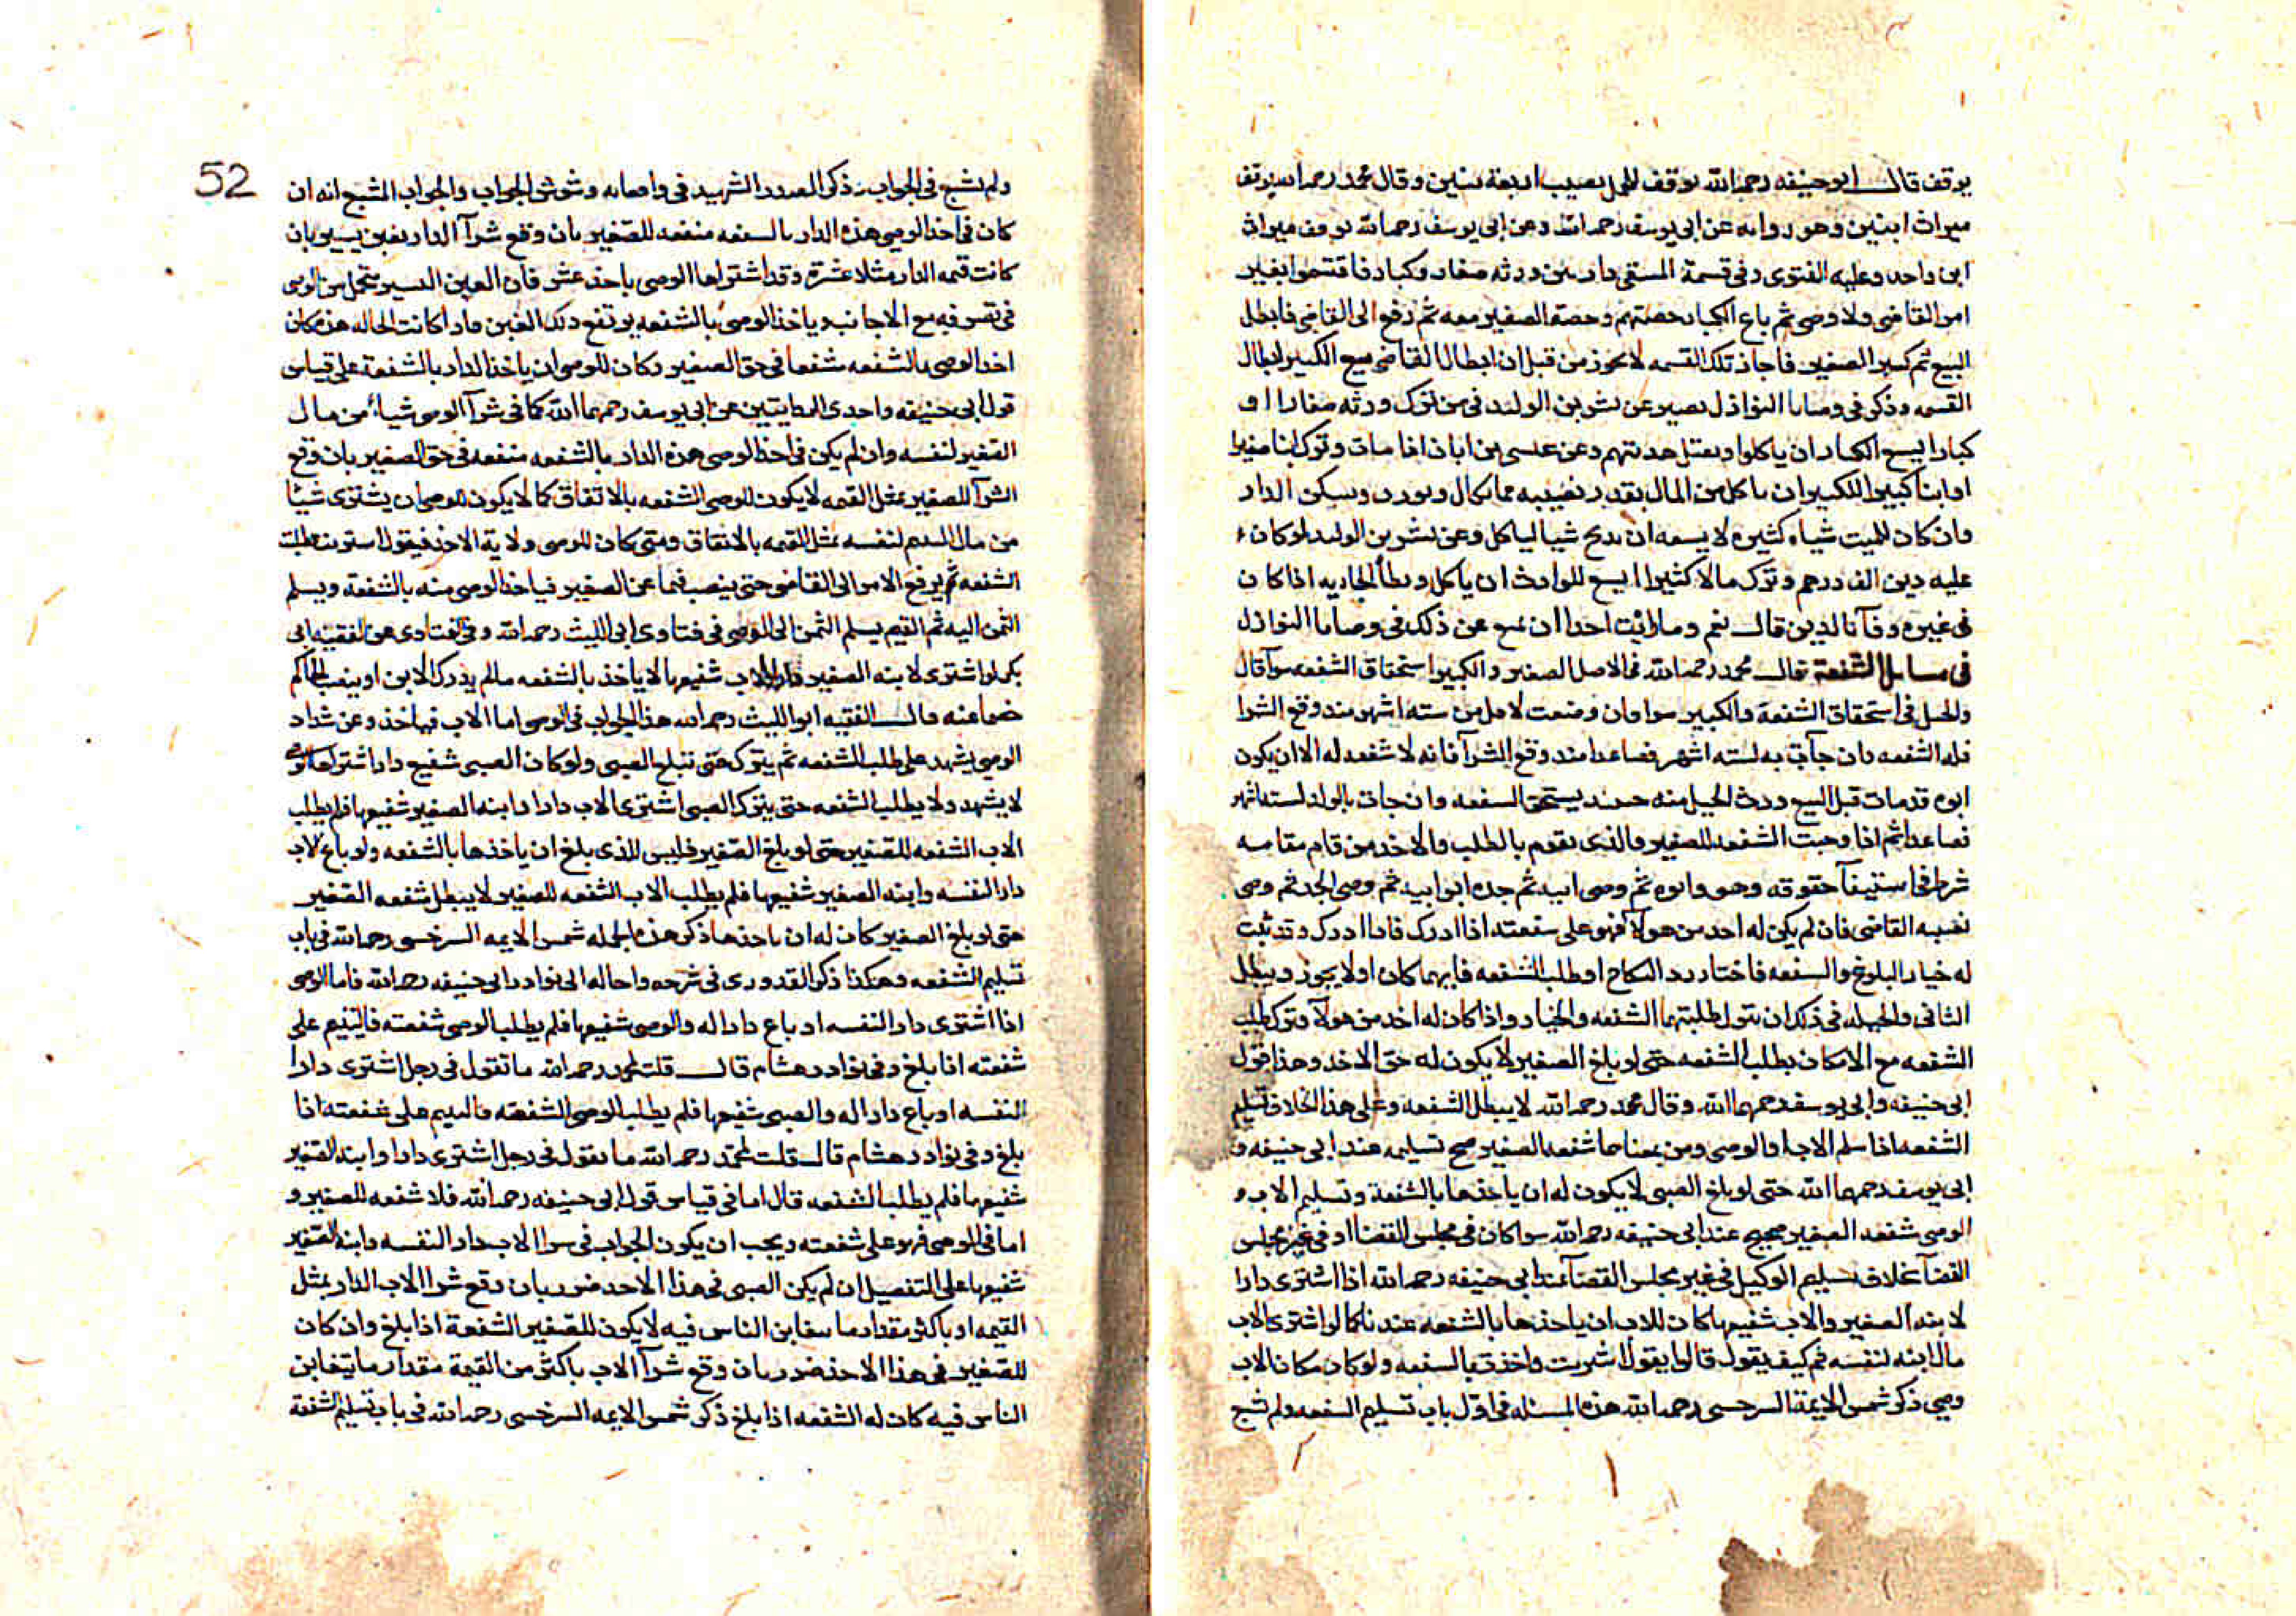 يوقف قال ابو حنيفه رحمه الله يوقف للحمل نصيب اربعة بنين وقال محمد رحمه الله يوقف
ميراث ابنين وهو روايه عن ابي يوسف رحمه الله وعن ابي يوسف رحمه الله يوقف ميراث
ابن واحد وعليه الفتوى وفي قسمة المستقى دار بين ورثه صغار وكبار فاقتسموا بغير
امر القاضي ولا وصي ثم باع الكبار حصتهم وحصة الصغير معه ثم رفع الى القاضي فابطل
البيع ثم كبر الصغير فاجاز تلك القسمه لا يجوز من قبل ان ابطال القاضي بيع الكبير ابطال
القسمه وذكر في وصايا النوازل نصير عن بشر بن الوليد في من ترك ورثه صغارا او
كبارا ايسع الكبار ان ياكلوا وعن عيسى بن ابان اذا مات وترك ابنا صغيرا
او ابنا كبيرا للكبير ان ياكل من المال بقدر نصيبه مما يكال ويوزن ويسكن الدار
وان كان للميت شياه كثيره لا يسعه ان يذبح شيا لياكل وعن بشر بن الوليد لو كان
عليه دين الف درهم وترك مالا كثيرا ايسع للوارث ان ياكل ويطأ الجاريه اذا كان
في غيره وفآ بالدين قال نعم وما رايت احدا امتنع عن ذلك في وصايا النوازل
في مسايل الشفعة قال محمد رحمه الله في الاصل الصغير والكبير في استحقاق الشفعه سوآ قال
والحمل في استحقاق الشفعة والكبير سوا وان وضعت لاقل من سته اشهر منذ وقع الشرا
فله الشفعه وان جآت به لسته اشهر فصاعدا منذ وقع الشرآ فانه لا شفعه له الا ان يكون
ابوه قد مات قبل البيع وورث الحمل منه حينئذ يستحق الشفعه وان جات بالولد لسته اشهر
فصاعدا ثم اذا وجبت الشفعه للصغير فالذي يقوم بالطلب والاخذ من قام مقامه
شرعا في استيفآ حقوقه وهو ابوه ثم وصي ابيه ثم جده ابو ابيه ثم وصي الجد ثم وصي
نصبه القاضي فان لم يكن له احد من هولآ فهو على شفعته اذا ادرك فاذا ادرك وقد ثبت
له خيار البلوغ والشفعه فاختار رد النكاح او طلب الشفعه فايهما كان اولا يجوز ويبطل
الثاني والحيله في ذلك ان يقول طلبتهما الشفعه والخيار واذا كان له احد من هولآ وترك طلب
الشفعه مع الامكان بطلت الشفعه حتى لو بلغ الصغير لا يكون له حق الاخذ وهذا قول
ابي حنيفه وابي يوسف رحمهما الله وقال محمد رحمه الله لا يبطل الشفعه وعلى هذا الخلاف تسليم
الشفعه اذا سلم الاب او الوصي ومن بمعناهما شفعه الصغير صح تسليمه عند ابي حنيفه و
ابي يوسف رحمهما الله حتى لو بلغ الصبي لا يكون له ان ياخذها بالشفعة وتسليم الاب و
الوصي شفعه الصغير صحيح عند ابي حنيفه رحمه الله سوا كان في مجلس القضا او في غير مجلس
القضآ بخلاف تسليم الوكيل في غير مجلس القضآ عند ابي حنيفه رحمه الله اذا اشترى دارا
لابنه الصغير والاب شفيعها كان للاب ان ياخذها بالشفعه عندنا كما لو اشترى الاب
مال ابنه لنفسه ثم كيف يقول قالوا يقول اشتريت واخذت بالشفعه ولو كان مكان الاب
وصي ذكر شمس الايمة السرخسي رحمه الله هذه المسئله في اول باب تسليم الشفعه ولم يشبع
52
ولم يشبع في الجواب وذكر الصدر الشهيد في واقعاته وشوش الجواب والجواب المشبع انه ان
كان في اخذ الوصي هذه الدار بالشفعه منفعه للصغير بان وقع شرآ الدار بغبن يسير بان
كانت قيمه الدار مثلا عشرة وقد اشتراها الوصي باحد عشر فان الغبن اليسير يتحمل من الوصي
في تصرفه مع الاجانب وياخذ الوصي بالشفعه يرتفع ذلك الغبن فاذا كانت الحاله هذه كان
اخذ الوصي بالشفعه منفعا في حق الصغير وكان للوصي ان ياخذ الدار بالشفعة على قياس
قول ابي حنيفه واحدى الروايتين عن ابي يوسف رحمهما الله كما في شرآ الوصي شياء من مال
الصغير لنفسه وان لم يكن في اخذ الوصي هذه الدار بالشفعه منفعه في حق الصغير بان وقع
الشرآ للصغير بمثل القيمه لا يكون للوصي الشفعه بالاتفاق كما لا يكون للوصي ان يشتري شيئا
من مال اليتيم لنفسه بمثل القيمه بالاتفاق ومتى كان للوصي ولاية الاخذ فيقول اشتريت وطلبت
الشفعه ثم يرفع الامر الى القاضي حتى ينصب قيما عن الصغير فياخذ الوصي منه بالشفعة ويسلم
الثمن اليه ثم القيم يسلم الثمن الى الوصي في فتاوى ابي الليث رحمه الله وفي الفتاوى عن الفقيه ابي
بكر لو اشترى لابنه الصغير دارا والاب شفيعها لا ياخذ بالشفعه مالم يدرك الابن او ينصب الحاكم
خصما عنه قال الفقيه ابو الليث رحمه الله هذا الجواب في الوصي اما الاب فيها خذ وعن شداد
الوصي يشهد على طلب الشفعه ثم يترك حتى تبلغ الصبي ولو كان الصبي شفيع دار اشتراها الوصي
لا يشهد ولا يطلب الشفعه حتى يترك الصبي اشترى الاب دارا وابنه الصغير شفيعها فلم يطلب
الاب الشفعه للصغير حتى لو بلغ الصغير فليس للذي بلغ ان ياخذها بالشفعه ولو باع الاب
دارا لنفسه وابنه الصغير شفيعها فلم يطلب الاب الشفعه للصغير لا يبطل شفعه الصغير
حتى لو بلغ الصغير كان له ان ياخذها ذكر هذه الجمله شمس الايمه السرخسي رحمه الله في باب
تسليم الشفعه وهكذا ذكر القدوري في شرحه واحاله الى نوادر ابي حنيفه رحمه الله فاما الوصي
اذا اشترى دارا لنفسه او باع دارا له والوصي شفيعها فلم يطلب الوصي شفعته فاليتيم على
شفعته اذا بلغ وفي نوادر هشام قال قلت لمحمد رحمه الله ما تقول في رجل اشترى دارا
لنفسه او باع دارا له والصبي شفيعها فلم يطلب الوصي الشفعه فاليتيم على شفعته اذا
بلغ وفي نوادر هشام قال قلت لمحمد رحمه الله ما تقول في رجل اشترى دارا وابنه الصغير
شفيعها فلم يطلب الشفعه قال اما في قياس قول ابي حنيفه رحمه الله فلا شفعه للصغير و
اما في الوصي فهو على شفعته ويجب ان يكون الجواب في شرا الاب دارا لنفسه وابنه الصغير
شفيعها على التفصيل ان لم يكن الصبي في هذا الاخذ ضرر بان وقع شرا الاب الدار بمثل
القيمه او باكثر مقدار ما يتغابن الناس فيه لا يكون للصغير الشفعة اذا بلغ وان كان
للصغير في هذا الاخذ ضرر بان وقع شرآ الاب باكثر من القيمة مقدار ما يتغابن
الناس فيه كان له الشفعه اذا بلغ ذكر شمس الايمه السرخسي رحمه الله في باب تسليم الشفعة